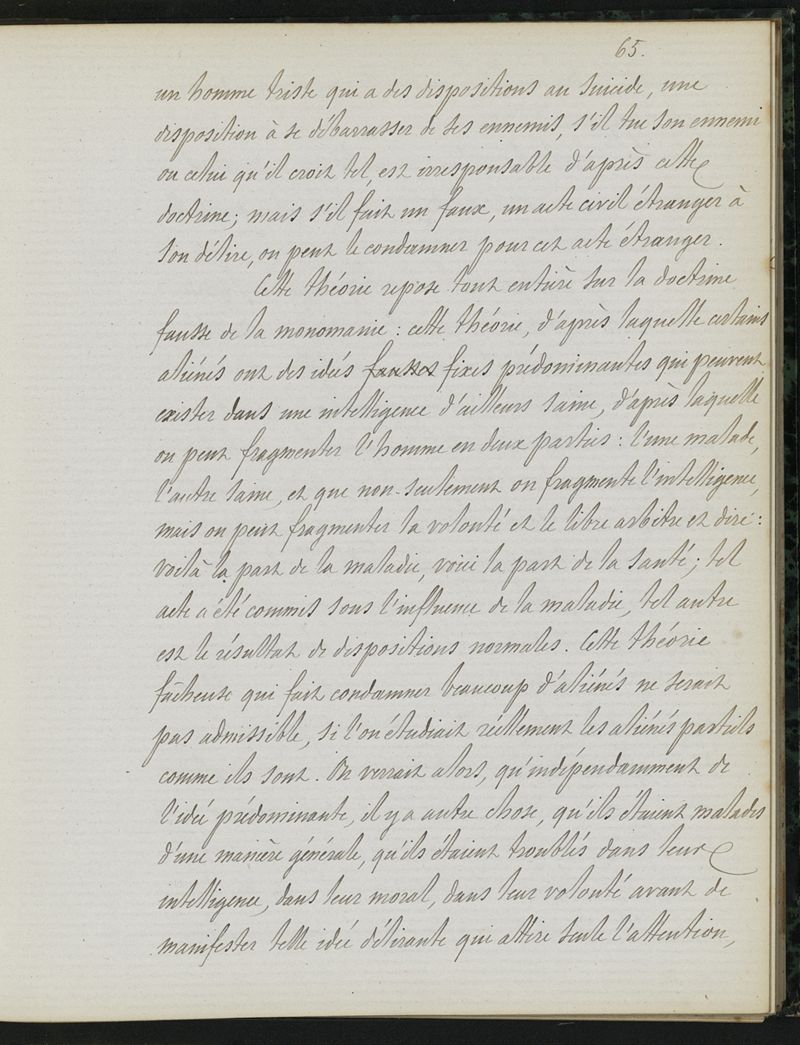 65.
un homme triste qui a des dispositions au suicide, une
disposition à se débarrasser de ses ennemis, s'il tue son ennemi
ou celui qu'il croit tel, est irresponsable d'après cette
doctrine; mais s'il fait un faux, un acte civil étranger à
son délire, on peut le condamner pour cet acte étranger.
Cette théorie repose tout entière sur la doctrine
fausse de la monomanie : cette théorie, d'après laquelle certains
aliénés ont des idées fausses fixes prédominantes qui peuvent
exister dans une intelligence d'ailleurs saine, d'après laquelle
on peut fragmenter l'homme en deux parties : l'une malade,
l'autre saine, et que non-seulement on fragmente l'intelligence,
mais on peut fragmenter la volonté et le libre arbitre et dire :
voilà la part de la maladie, voici la part de la santé ; tel
acte a été commis sous l'influence de la maladie, tel autre
est le résultat de dispositions normales. Cette théorie
fâcheuse qui fait condamner beaucoup d'aliénés ne serait
pas admissible, si l'on étudiait réellement les aliénés partiels
comme ils sont. On verrait alors, qu'indépendamment de
l'idée prédominante, il y a autre chose, qu'ils étaient malades
d'une manière générale, qu'ils étaient troublés dans leur
intelligence, dans leur moral, dans leur volonté avant de
manifester telle idée délirante qui attire seule l'attention,